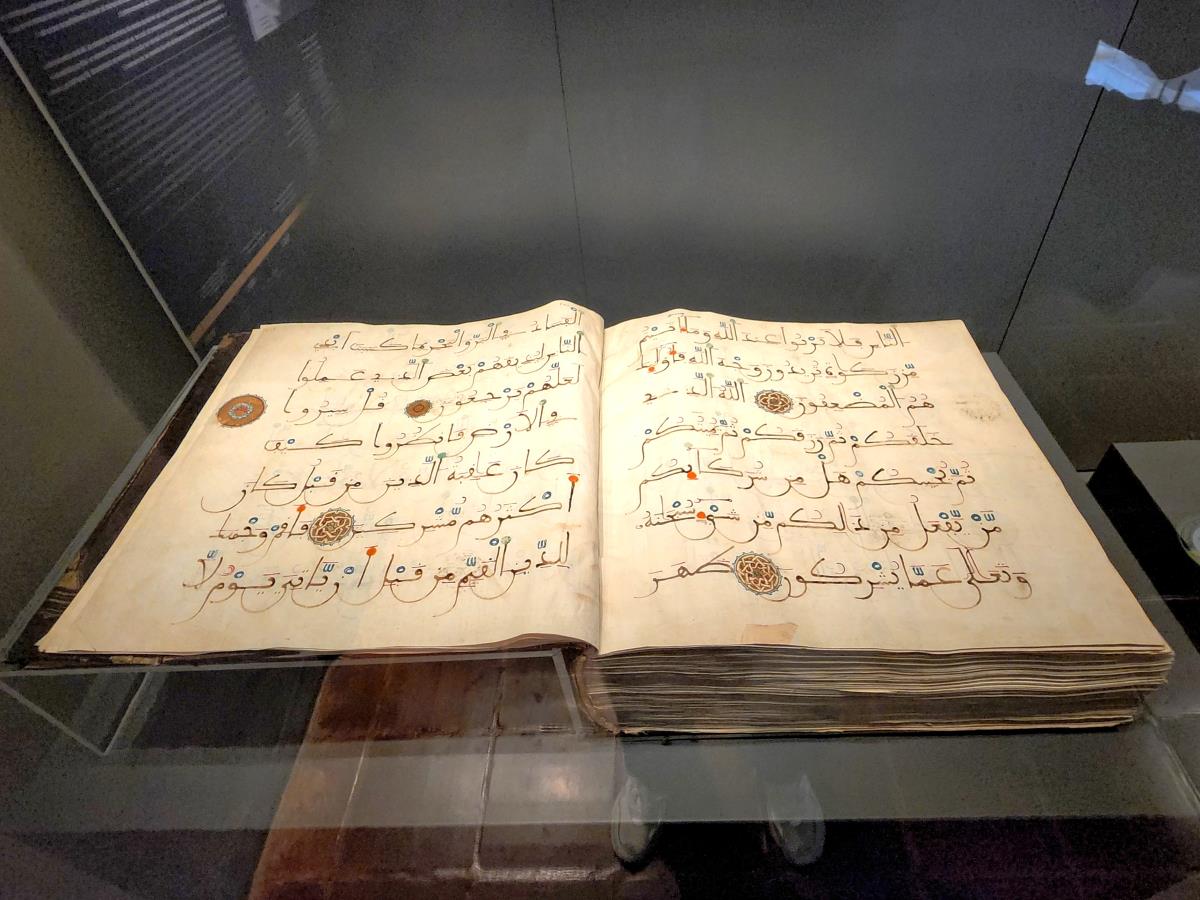 الناس فلا يربوا عند الله وما ءاتيتم
من زكوة تريدون وجه الله فأوليك
هم المضعفون الله الذي
خلقكم ثم رزقكم ثم يميتكم
ثم يحييكم هل من شركايكم
من يفعل من ذلكم من شيء سبحنه
وتعلى عما يشركون ظهر
الفساد في البر والبحر بما كسبت ايدي
الناس ليذيقهم بعض الذي عملوا
لعلهم يرجعون قل سيروا
في الارض فانظروا كيف
كان عقبة الذين من قبل كان
اكثرهم مشركين فاقم وجهك
للدين القيم من قبل ان ياتي يوم لا